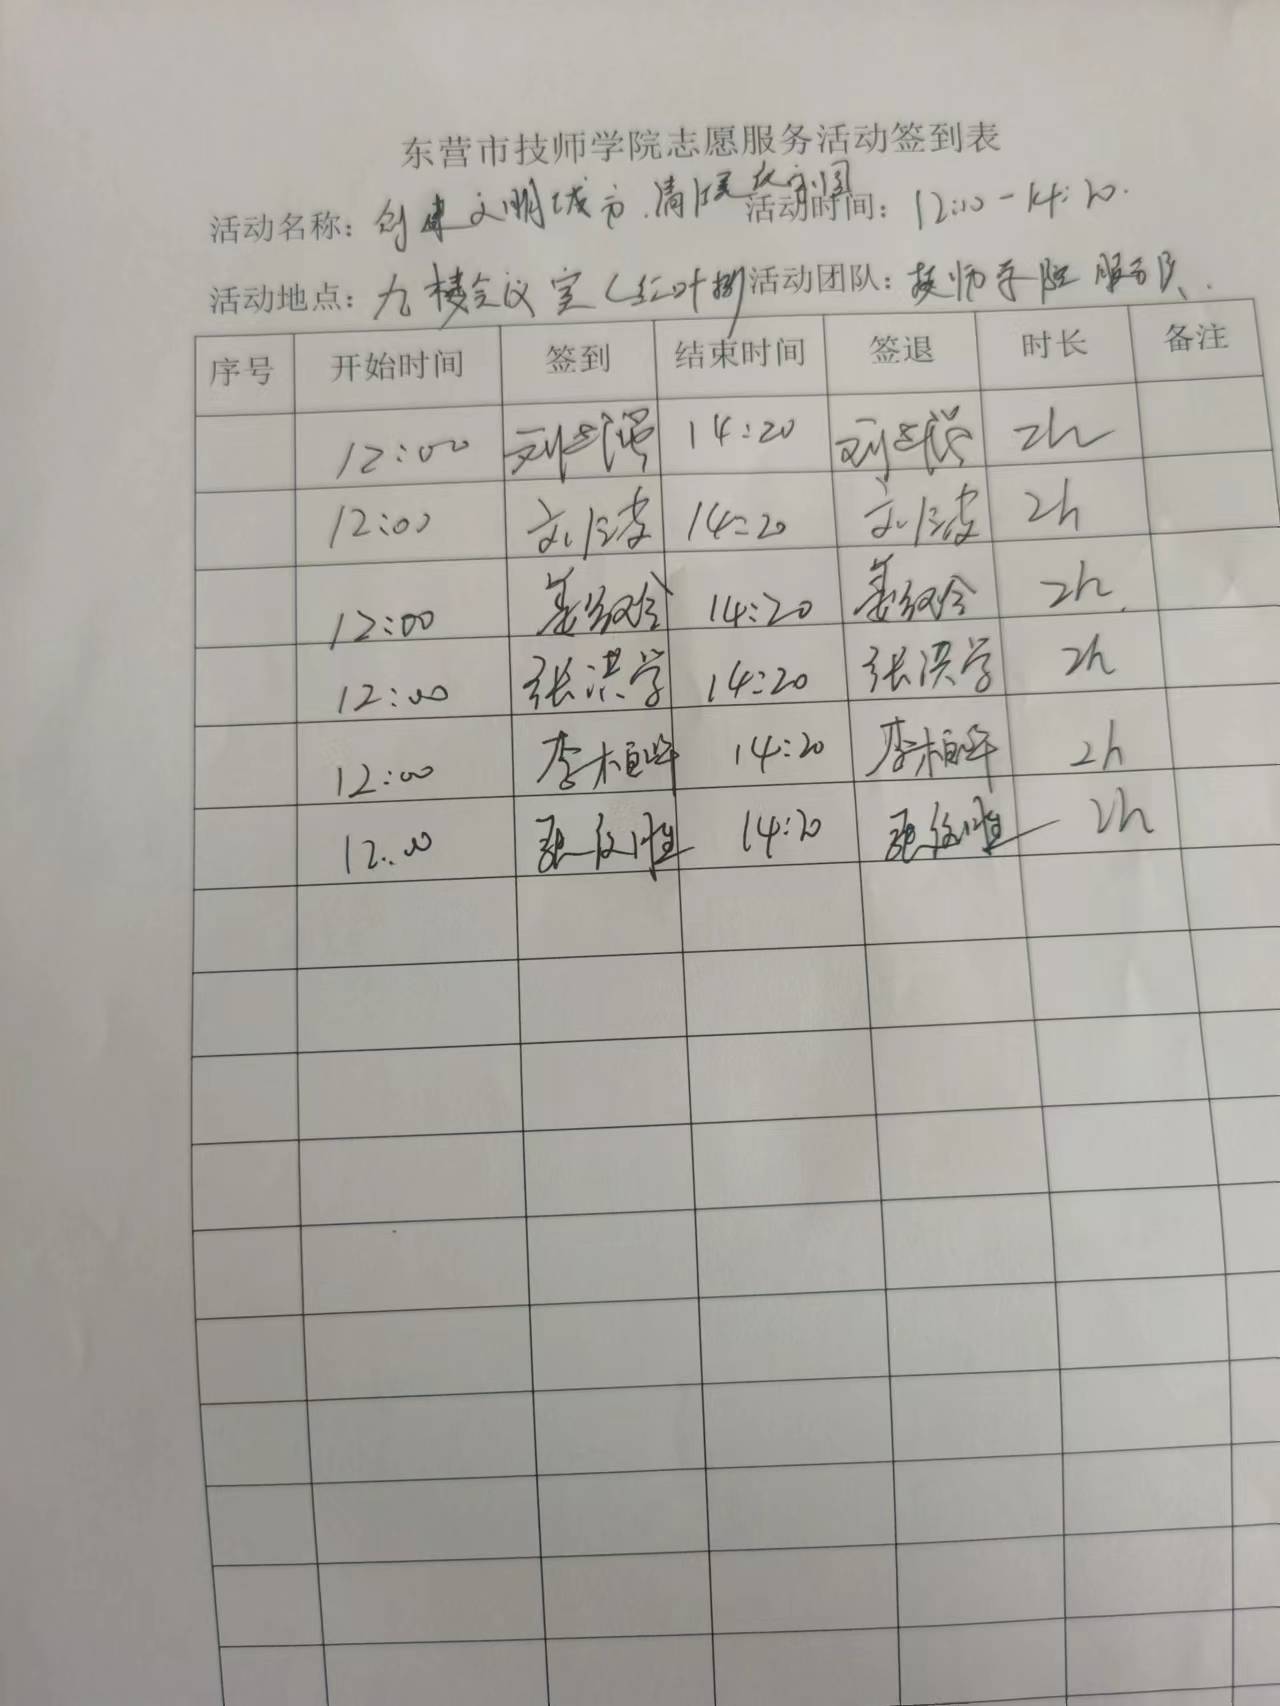 东营市技师学院志愿服务活动签到表
活动名称：创建文明城市.清 活动时间：12:00-14:20.
活动地点：九楼会议室(红叶 活动团队：技师学院服务队.
序号 开始时间 签到 结束时间 签退 时长 备注
12:00 刘 14:20 刘 2h
12:00 14:20 2h
12:00 姜 14:20 姜 2h
12:00 张洪学 14:20 张洪学 2h
12:00 李桓晔 14:20 李桓晔 2h
12:00 张 14:20 张 2h